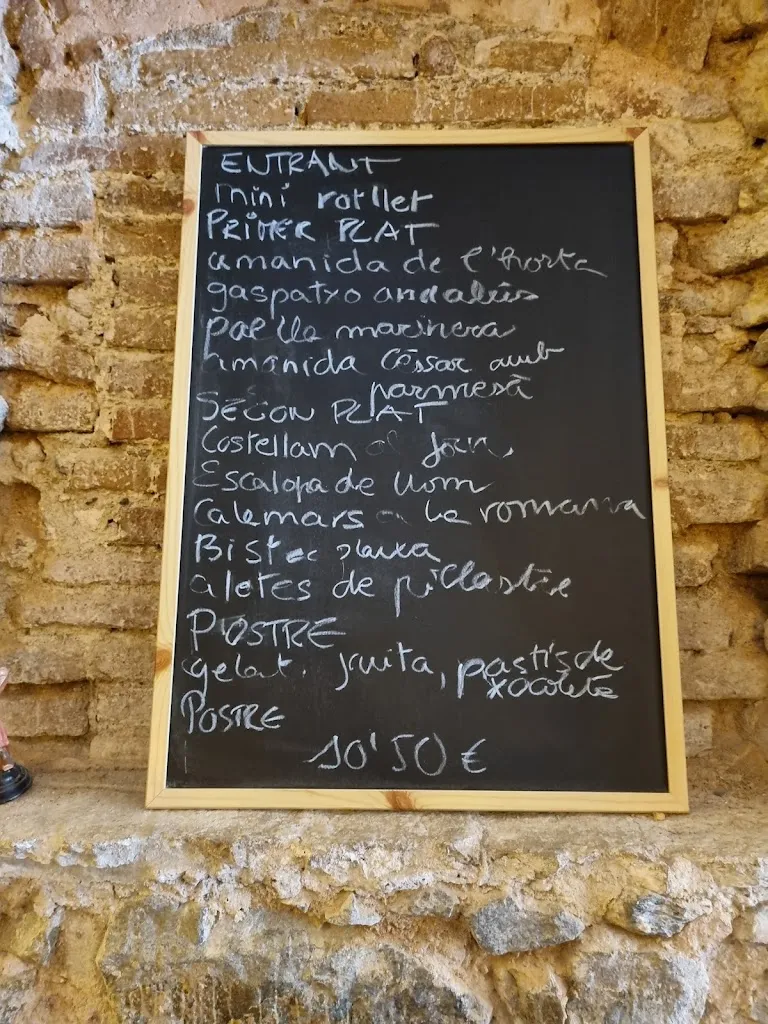 ENTRANT
mini rotllet
PRIMER PLAT
amanida de l'horta
gaspatxo andalús
paella marinera
amanida Cèssar amb
parmesà
SEGON PLAT
Costellam al forn
Escalopa de llom
Calamars a la romana
Bistec planxa
aletes de pollastre
POSTRE
gelat. fruita, pastís de
xocolate
POSTRE
10'50 €